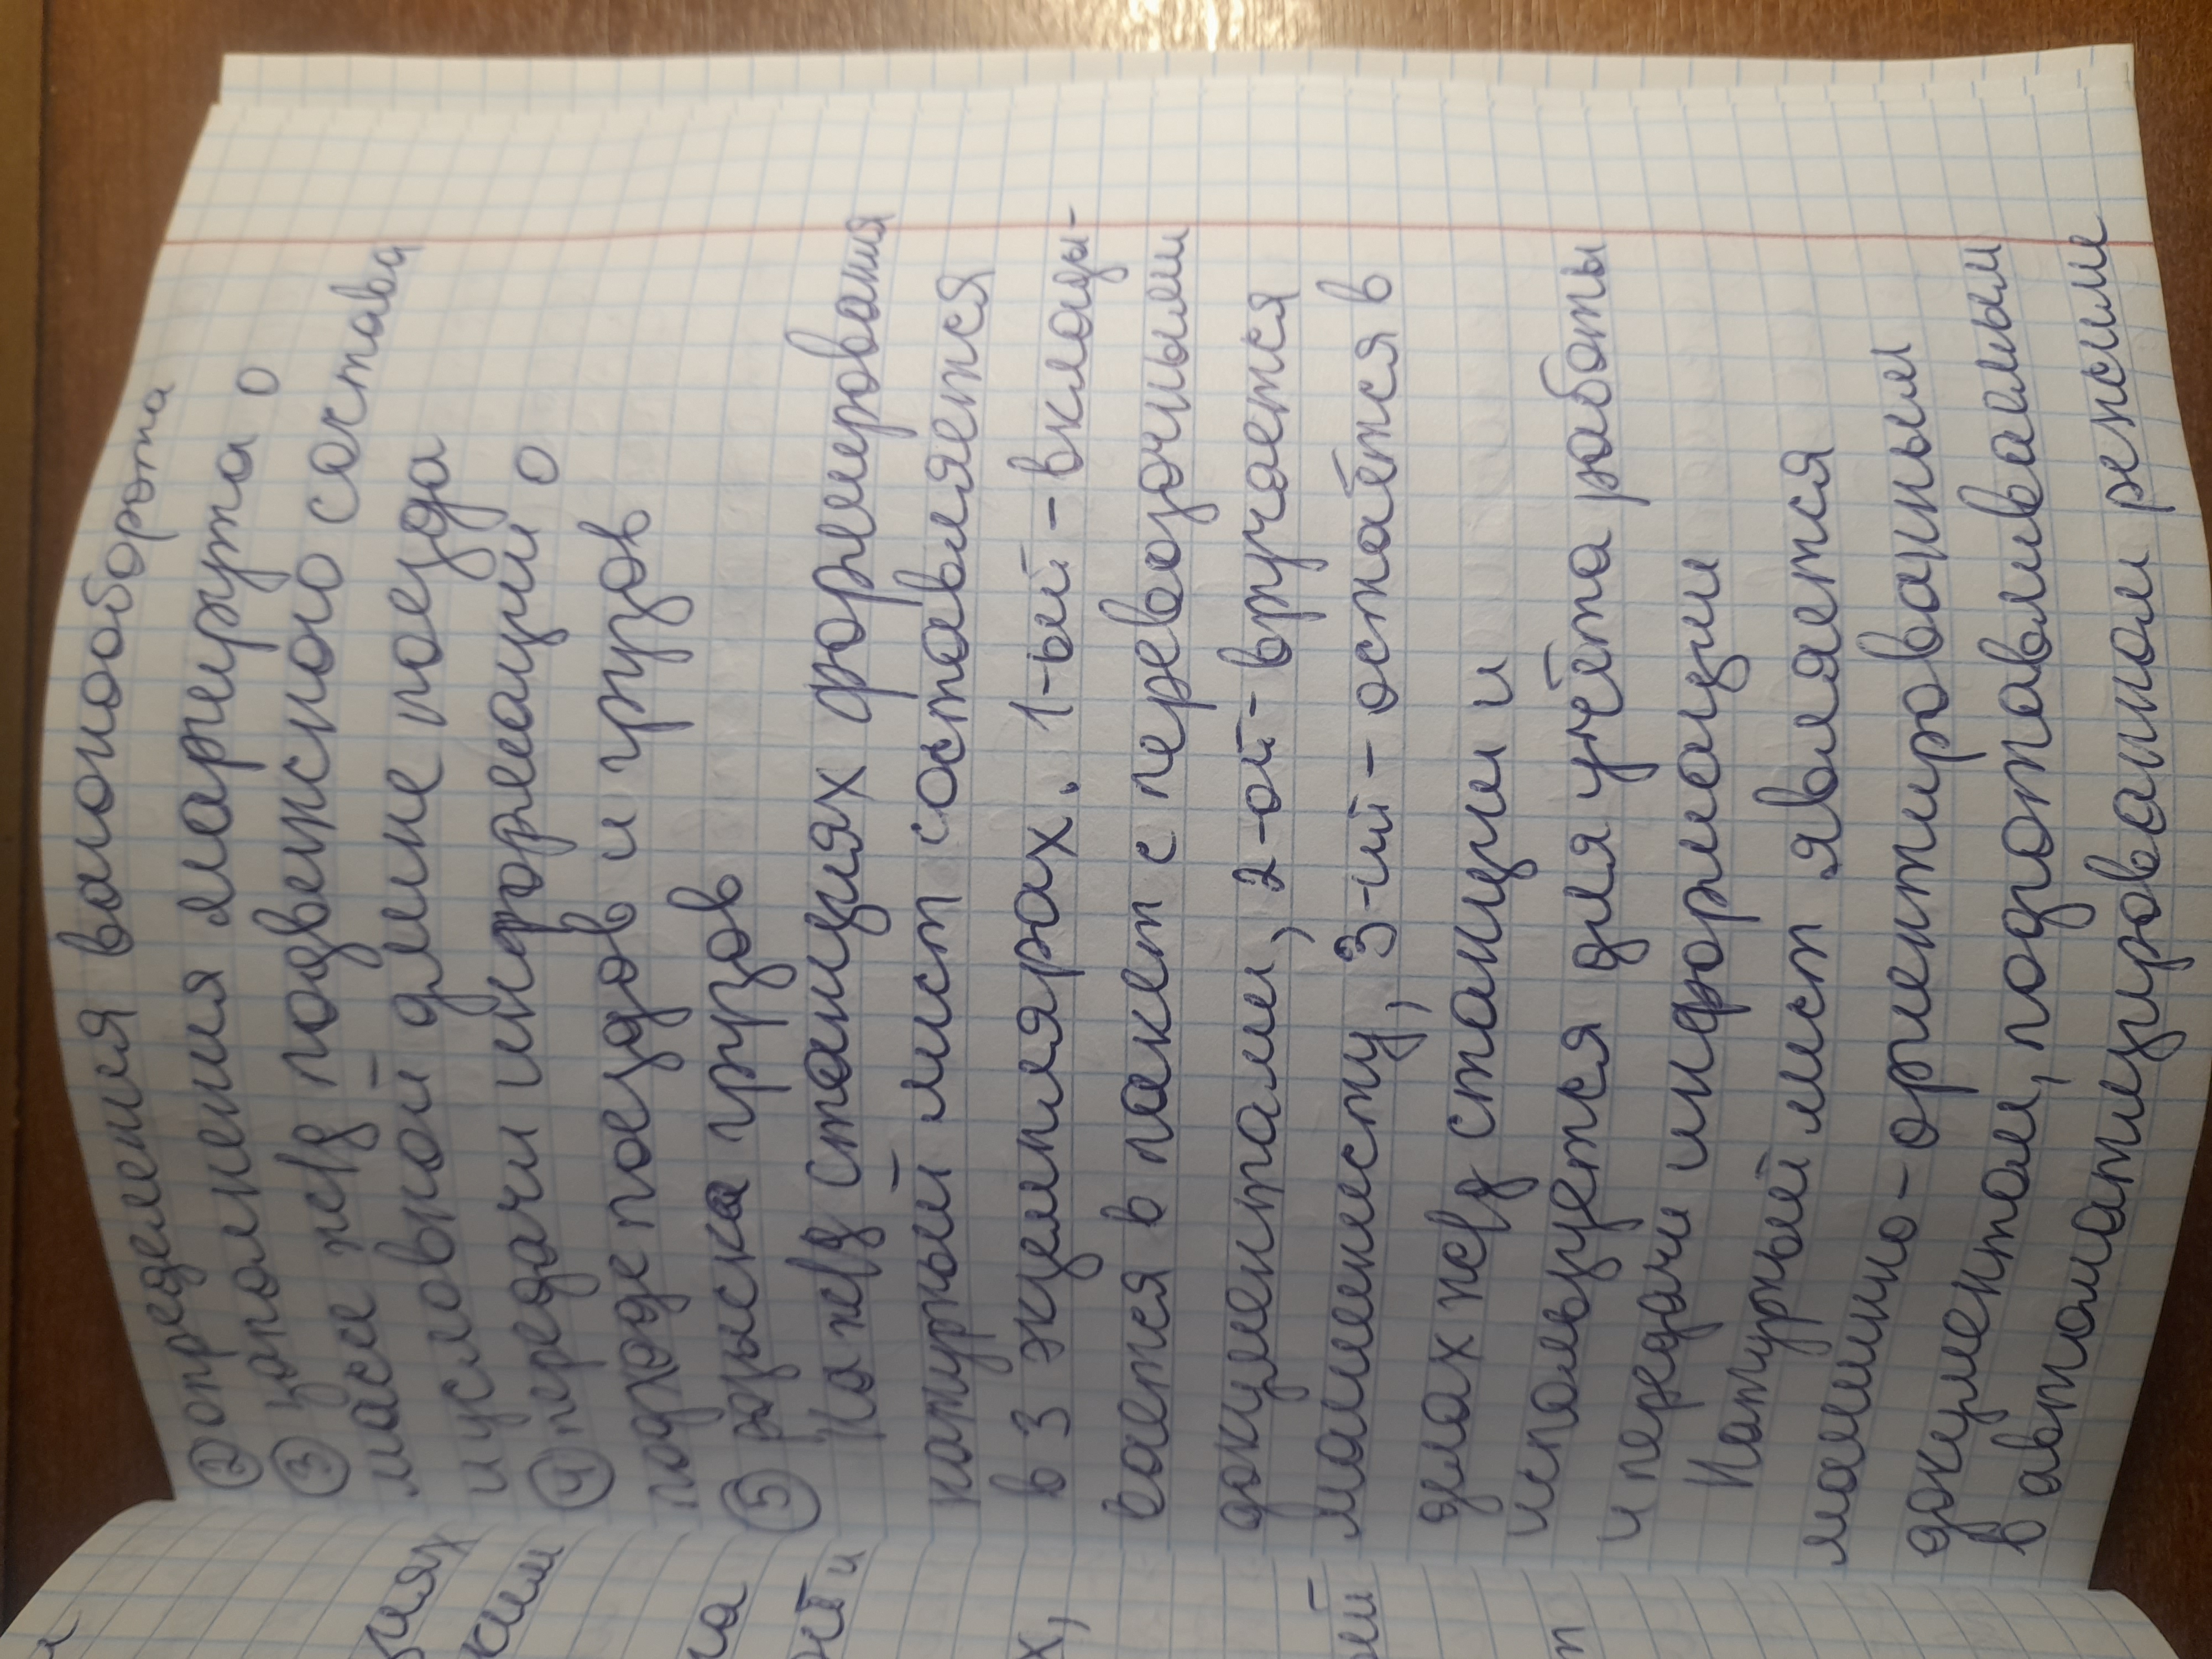 ② определения вагонооборота
③ заполнения маршрута о
массе ж/д подвижного состава
и условной длине поезда
④ передачи информации о
подходе поездов и грузов
⑤ розыска грузов
На ж/д станциях формирования
натурный лист составляется
в 3 экземплярах. 1-ый - вклады-
вается в пакет с перевозочными
документами, 2-ой - вручается
машинисту, 3-ий - остаётся в
делах ж/д станции и
используется для учёта работы
и передачи информации
Натурный лист является
машинно-ориентированным
документом, подготавливаемым
в автоматизированном режиме